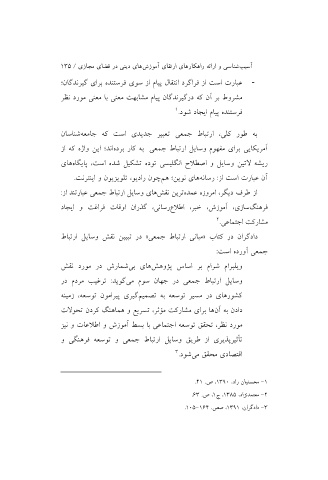 آسیب‌شناسی و ارائه راهکارهای ارتقای آموزش‌های دینی در فضای مجازی / ۱۳۵
- عبارت است از فراگرد انتقال پیام از سوی فرستنده برای گیرندگان؛
مشروط بر آن که درگیرندگان پیام مشابهت معنی با معنی مورد نظر
فرستنده پیام ایجاد شود.۱
به طور کلی، ارتباط جمعی تعبیر جدیدی است که جامعه‌شناسان
آمریکایی برای مفهوم وسایل ارتباط جمعی به کار برده‌اند؛ این واژه که از
ریشه لاتین وسایل و اصطلاح انگلیسی توده تشکیل شده است، پایگاه‌های
آن عبارت است از: رسانه‌های نوین؛ هم‌چون رادیو، تلویزیون و اینترنت.
از طرف دیگر، امروزه عمده‌ترین نقش‌های وسایل ارتباط جمعی عبارتند از:
فرهنگ‌سازی، آموزش، خبر، اطلاع‌رسانی، گذران اوقات فراغت و ایجاد
مشارکت اجتماعی.۲
دادگران در کتاب «مبانی ارتباط جمعی» در تبیین نقش وسایل ارتباط
جمعی آورده است:
ویلبرام شرام بر اساس پژوهش‌های بی‌شمارش در مورد نقش
وسایل ارتباط جمعی در جهان سوم می‌گوید: ترغیب مردم در
کشورهای در مسیر توسعه به تصمیم‌گیری پیرامون توسعه، زمینه
دادن به آن‌ها برای مشارکت مؤثر، تسریع و هماهنگ کردن تحولات
مورد نظر، تحقق توسعه اجتماعی با بسط آموزش و اطلاعات و نیز
تأثیرپذیری از طریق وسایل ارتباط جمعی و توسعه فرهنگی و
اقتصادی محقق می‌شود.۳
۱- محسنیان راد، ۱۳۹۰، ص. ۴۱.
۲- معتمدنژاد، ۱۳۸۵، ج۱، ص. ۶۳.
۳- دادگران، ۱۳۹۱، صص. ۱۶۴-۱۰۵.